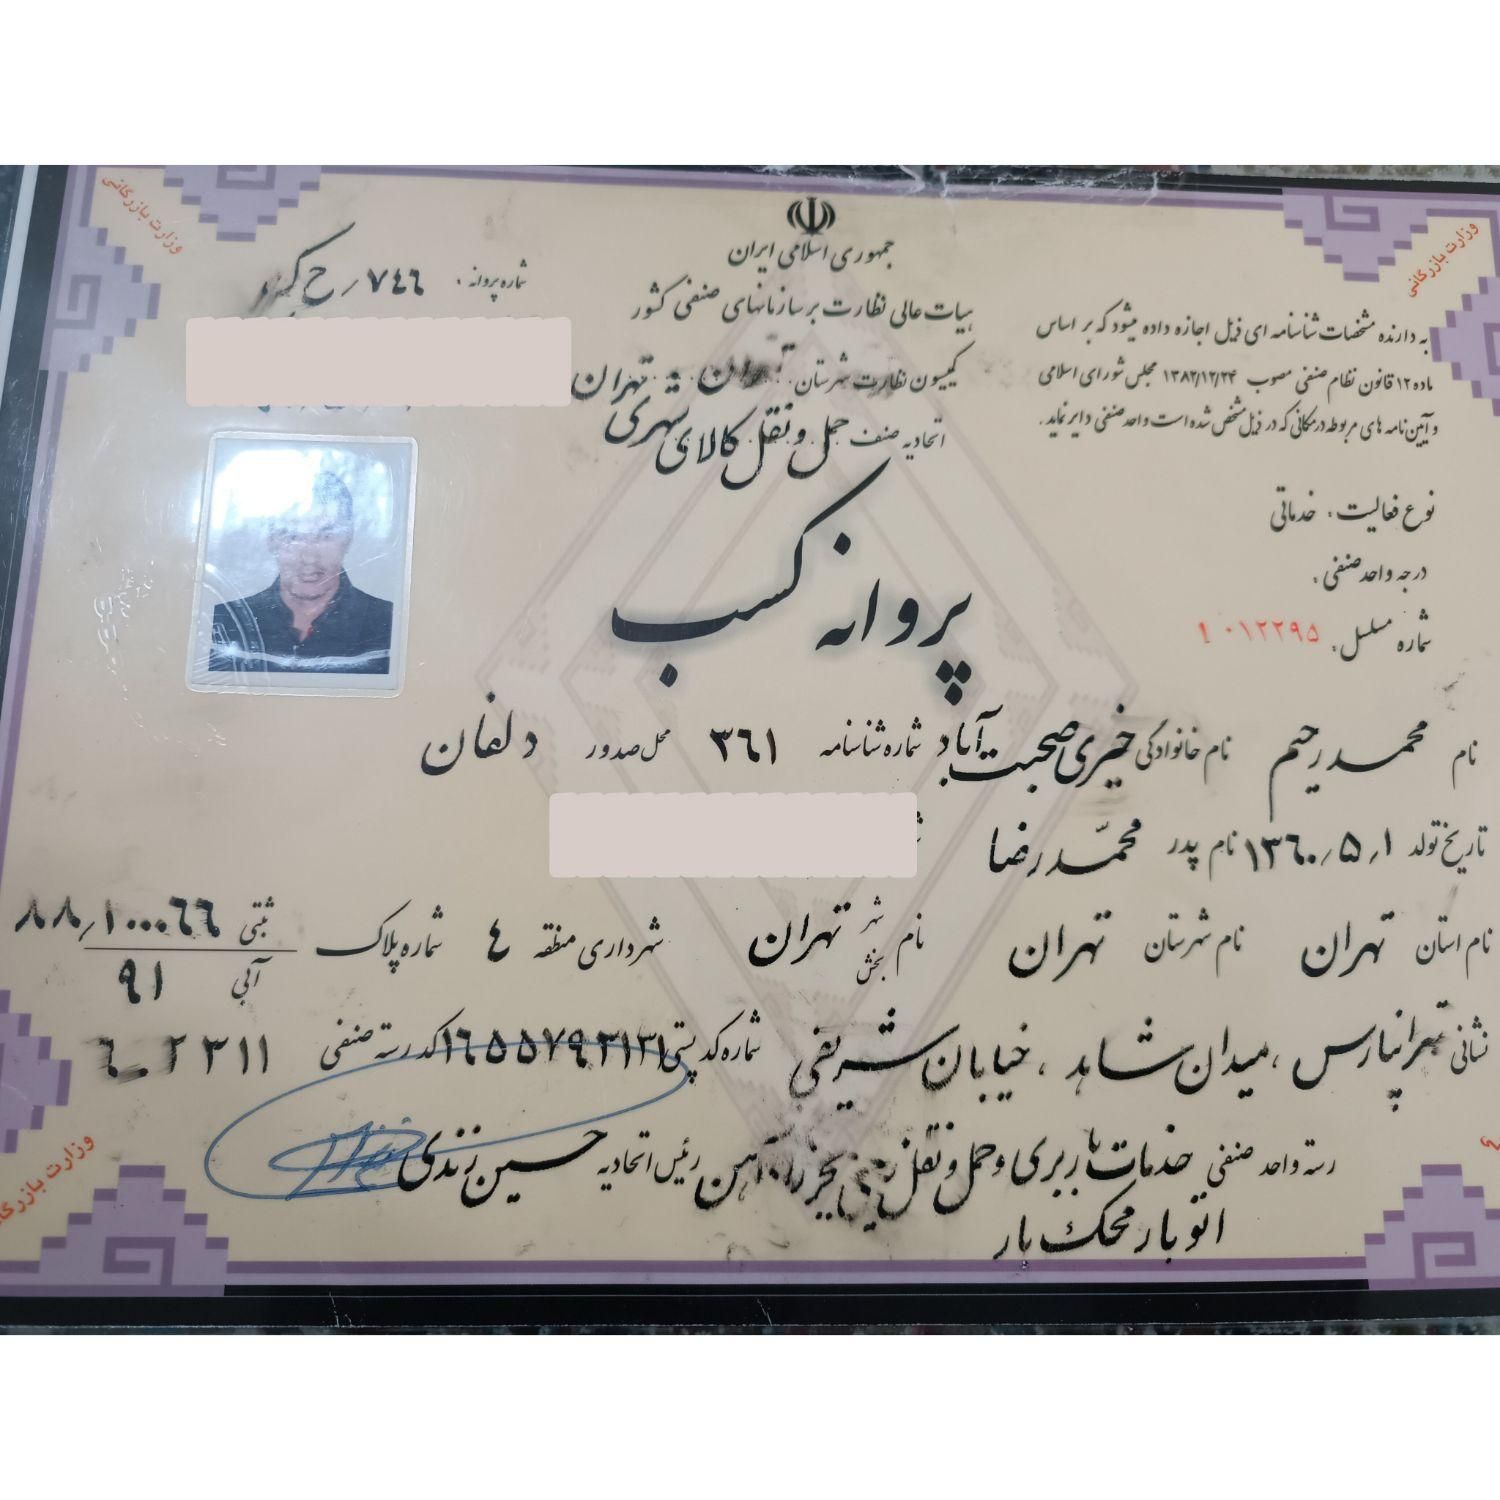 جمهوری اسلامی ایران
هیات عالی نظارت بر سازمانهای صنفی کشور
کمیسیون نظارت شهرستان: تهران - تهران
اتحادیه صنف حمل و نقل کالای شهری
شماره پروانه: ۷۴۶/ح
به دارنده مشخصات شناسنامه ای ذیل اجازه داده میشود که بر اساس
ماده ۱۲ قانون نظام صنفی مصوب ۱۳۸۲/۱۲/۲۴ مجلس شورای اسلامی
و آیین نامه های مربوطه در مکانی که در ذیل مشخص شده است واحد صنفی دایر نماید.
نوع فعالیت: خدماتی
درجه واحد صنفی:
شماره مسلسل: ۱۰۱۲۲۹۵
پروانه کسب
نام محمد رحیم نام خانوادگی خیری صحبت آباد شماره شناسنامه ۳۶۱ محل صدور دلفان
تاریخ تولد ۱۳۶۰/۵/۱ نام پدر محمّد رضا
نام استان تهران نام شهرستان تهران نام شهر بخش تهران شهرداری منطقه ۴ شماره پلاک ثبتی ۸۸/۱۰۰۰۰۶۶
آبی ۹۱
نشانی تهرانپارس، میدان شاهد، خیابان شریفی شماره کد پستی ۱۶۵۵۷۹۳۱۳۱ کد رسته صنفی ۶-۲۳۱۱
رسته واحد صنفی خدمات باربری و حمل و نقل زمینی بجز راه آهن رئیس اتحادیه حسین زندی
اتوبار محک بار
وزارت بازرگانی
وزارت بازرگانی
وزارت بازرگانی